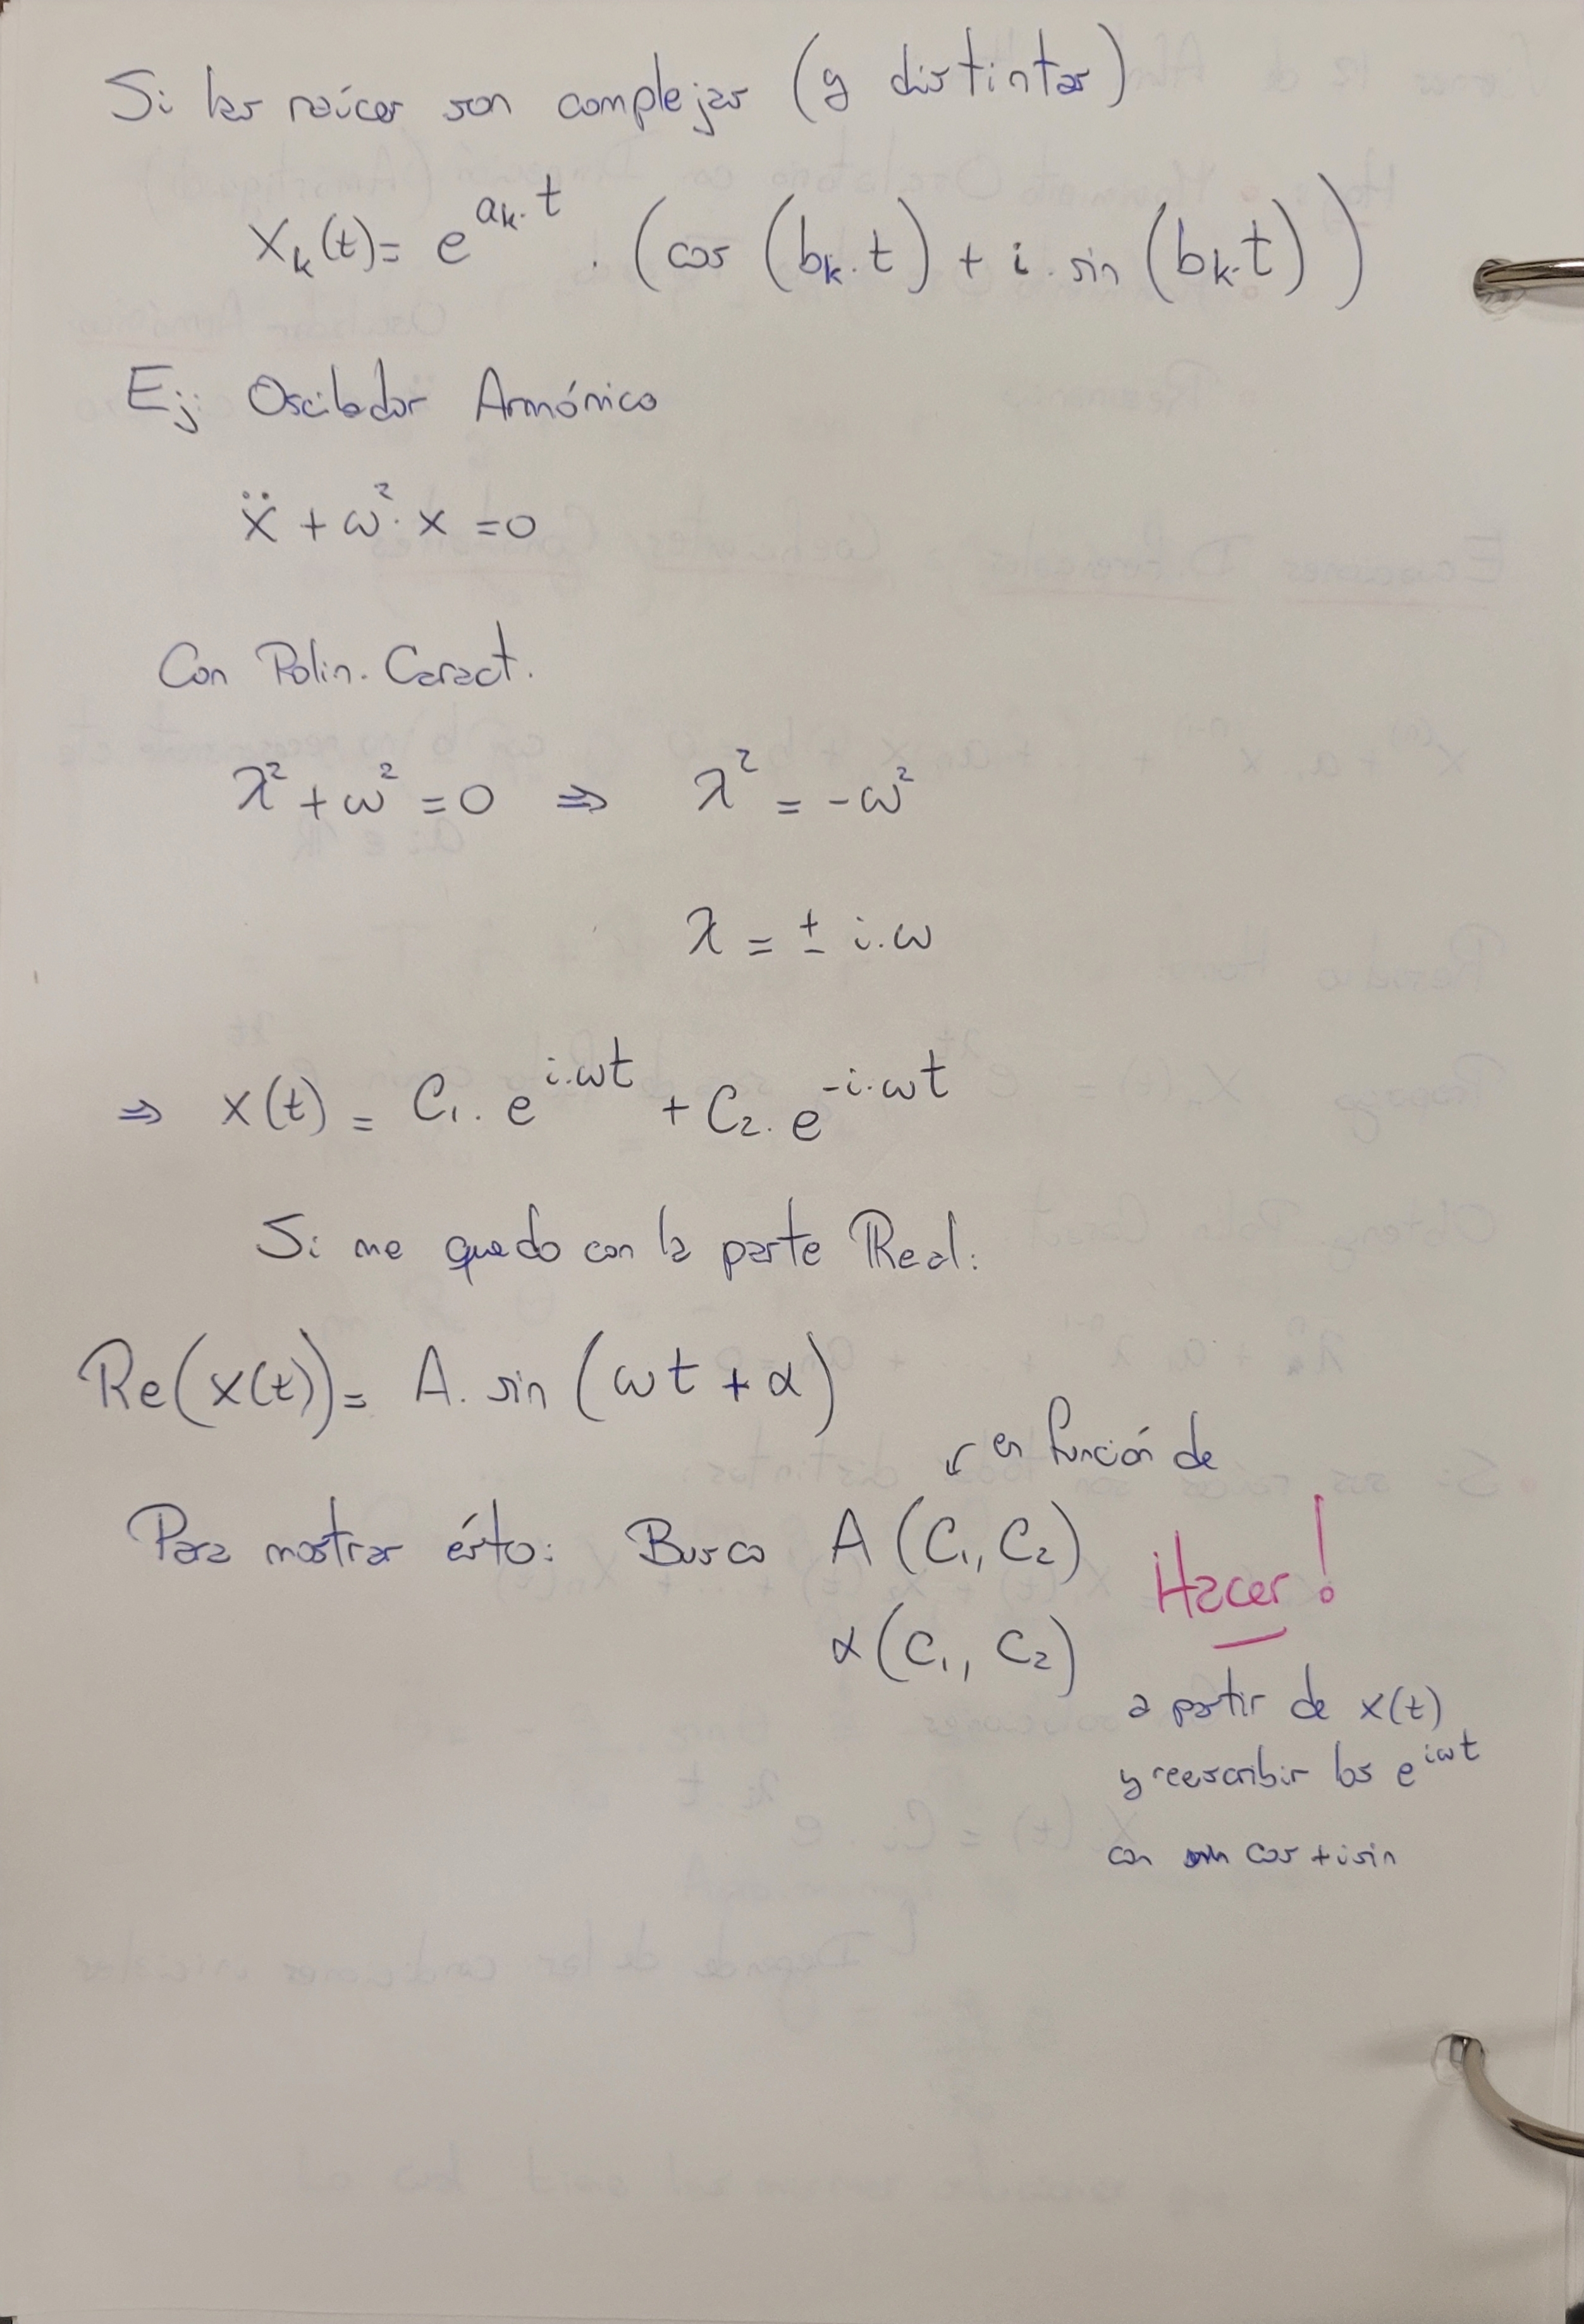 Si las raíces son complejas (y distintas)
Xₖ(t) = e^(aₖ·t) · (cos (bₖ·t) + i · sin (bₖ·t))
Ej: Oscilador Armónico
ẍ + ω²· x = 0
Con Polin. Caract.
λ² + ω² = 0 ⇒ λ² = -ω²
λ = ± i.ω
⇒ x(t) = C₁. e^(i.ωt) + C₂. e^(-i.ωt)
Si me quedo con la parte Real:
Re(x(t)) = A. sin (ωt + α)
↙ en función de
Para mostrar ésto: Busco A (C₁, C₂)
Hacer!
α (C₁, C₂)
a partir de x(t)
y reescribir los e^(iωt)
con cos + i sin